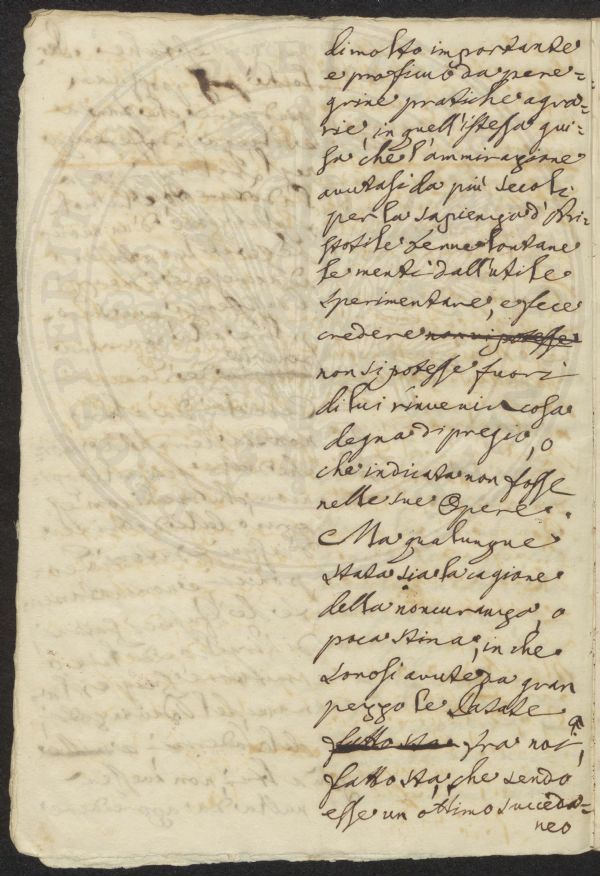 di molto importante
e proficuo da pere=
grine pratiche agra=
rie, in quell'istessa gui=
sa che l'ammirazione
avutasi da più secoli
per la sapienza d'Ari=
stotile tenne lontane
le menti dall'utile
sperimentare, e fece
credere non si potesse
non si potesse fuori
di lui rinvenir cosa
degna di pregio, o
che indicata non fosse
nelle sue Opere.
Ma qualunque
stata sia la cagione
della noncuranza, o
poca stima, in che
sonosi avute za gran
pezzo le Patate
fatto sta fra noi,
fatto sta, che sendo
esse un ottimo succeda=
neo